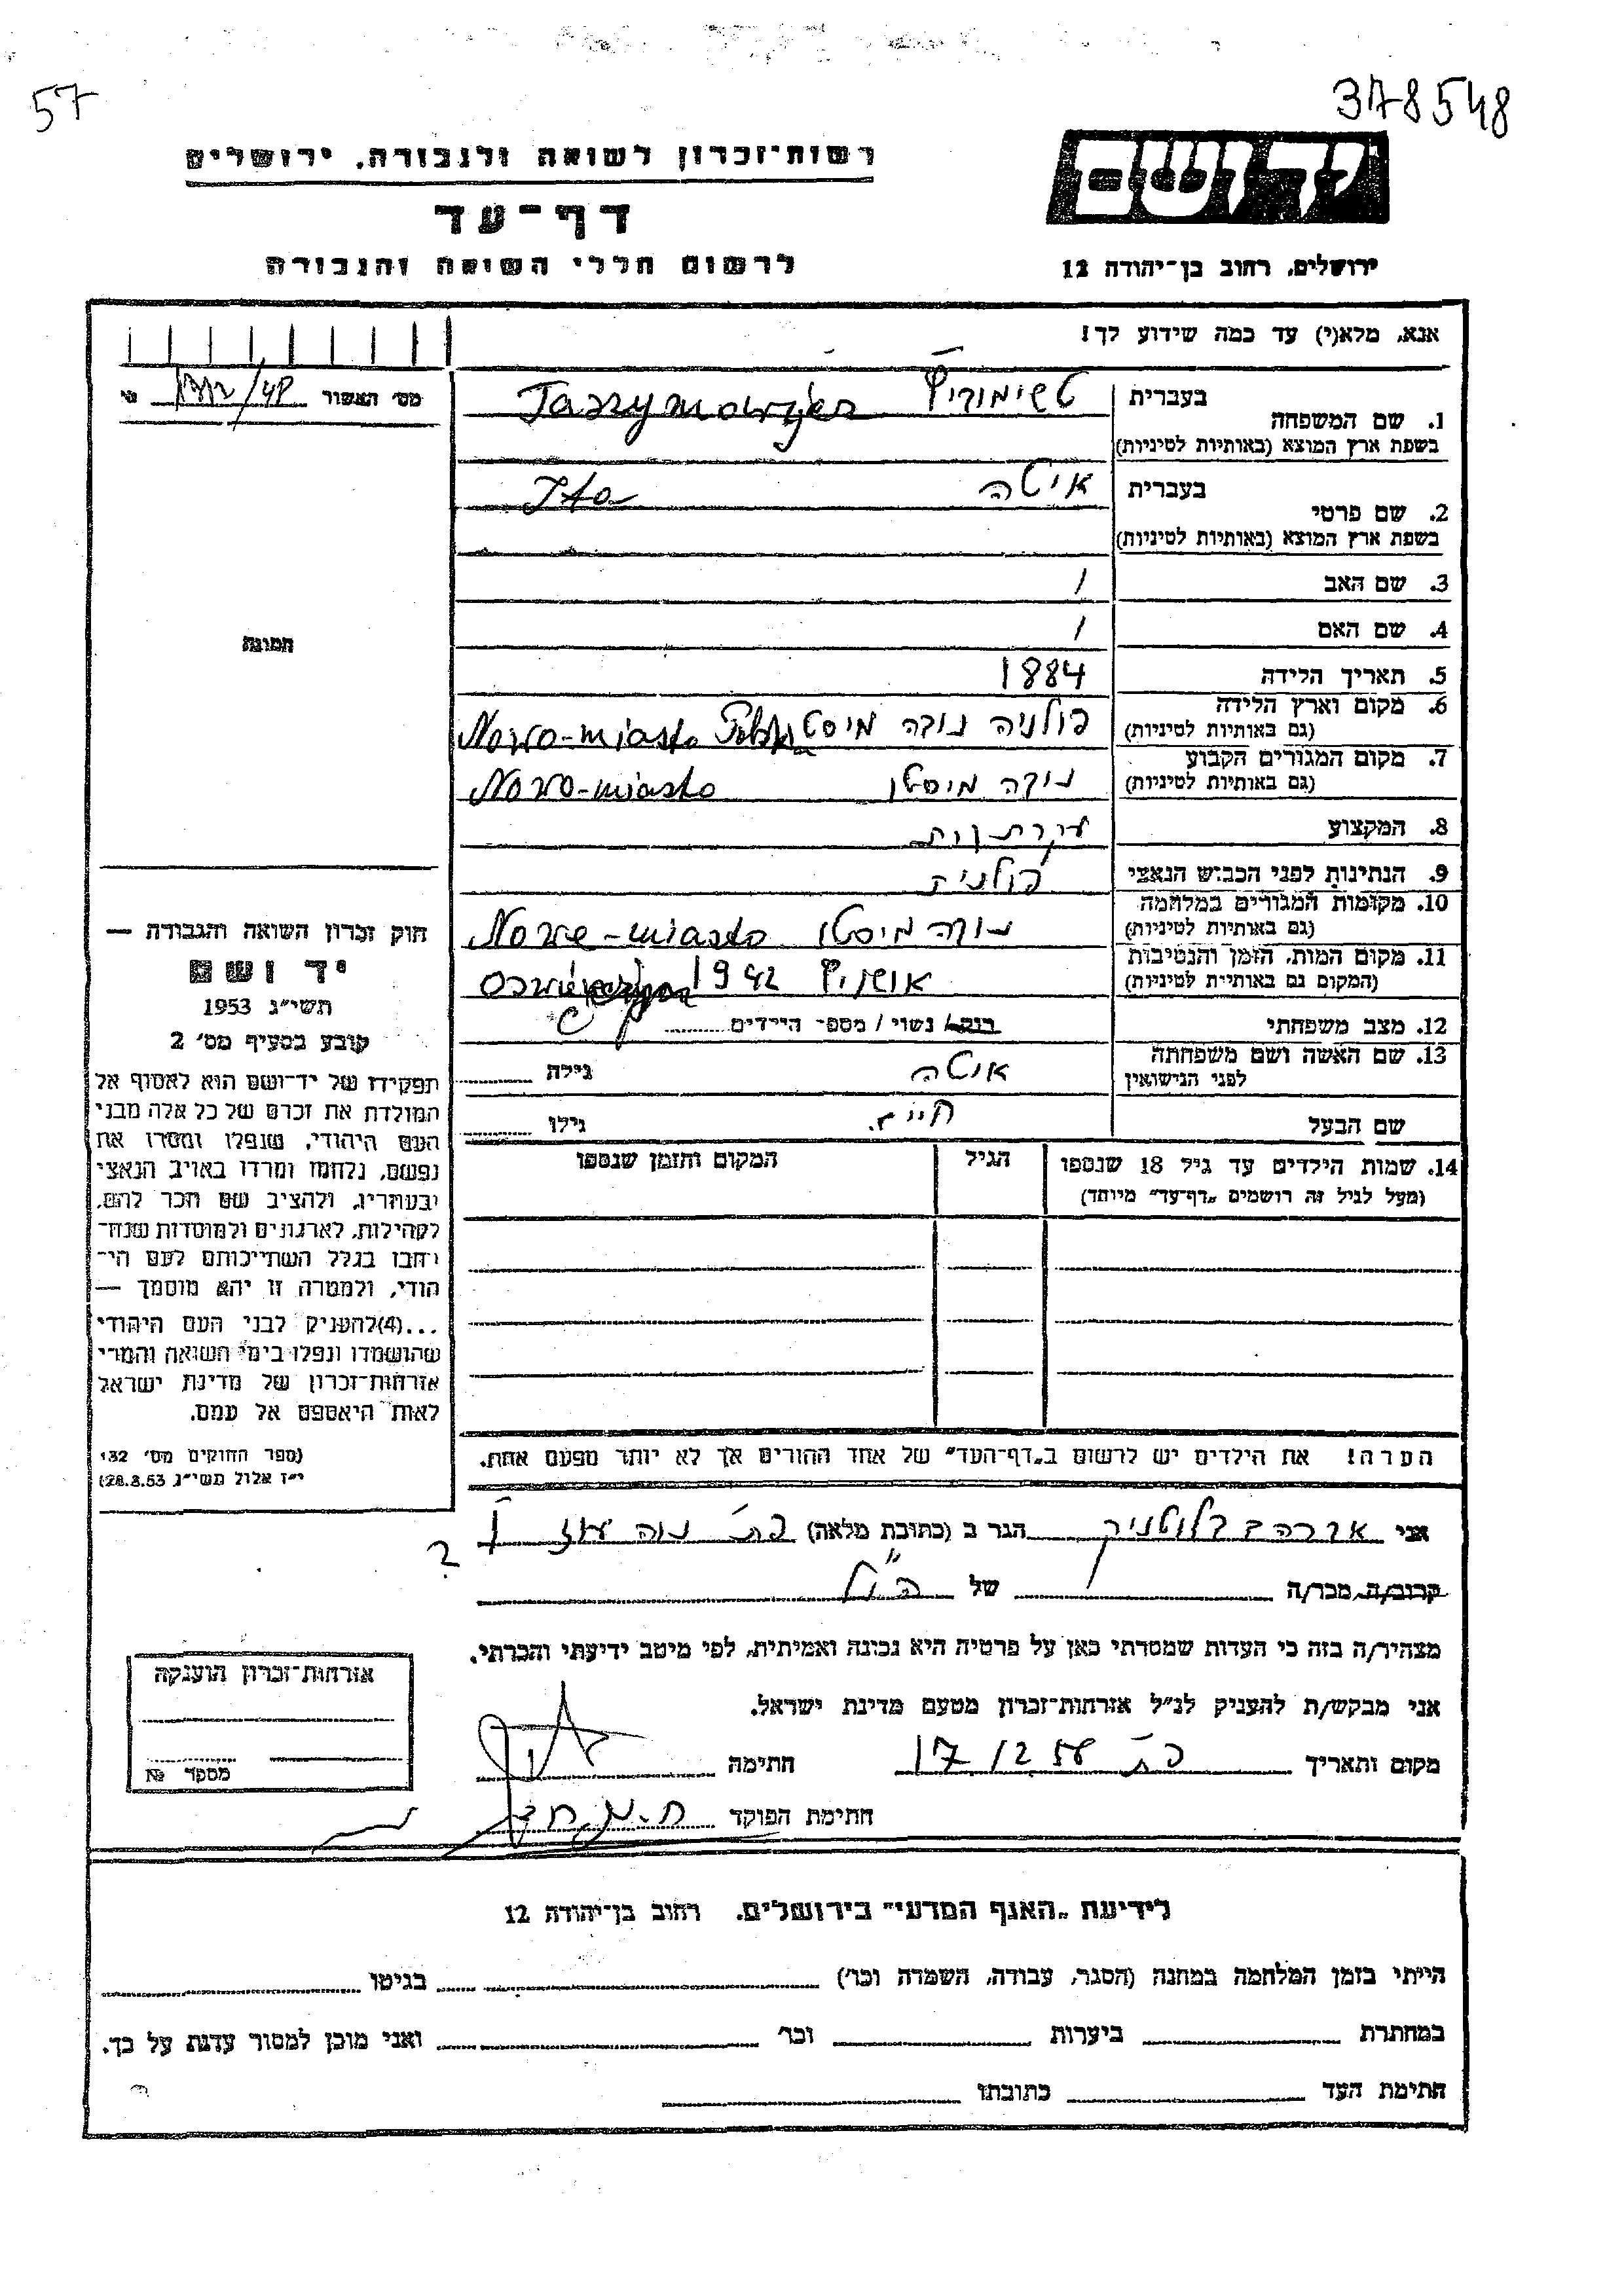 57
378548
יד ושם
רשות־זכרון לשואה ולגבורה, ירושלים
דף־עד
לרשום חללי השואה והגבורה
ירושלים, רחוב בן־יהודה 12
אנא, מלא(י) עד כמה שידוע לך!
מס׳ האשור
1. שם המשפחה
בעברית
בשפת ארץ המוצא (באותיות לטיניות)
2. שם פרטי
בעברית איטה Ita
בשפת ארץ המוצא (באותיות לטיניות)
3. שם האב /
4. שם האם /
5. תאריך הלידה 1884
6. מקום וארץ הלידה פולניה נובה מיסט Nowo-miasto
(גם באותיות לטיניות)
7. מקום המגורים הקבוע נובה מיסטו Nowo-miasto
(גם באותיות לטיניות)
8. המקצוע
9. הנתינות לפני הכבוש הנאצי פולנית
10. מקומות המגורים במלחמה נובה מיסטו Nowe-miasto
(גם באותיות לטיניות)
11. מקום המות, הזמן והנסיבות 1942
(המקום גם באותיות לטיניות)
12. מצב משפחתי רווק / נשוי / מספר הילדים
13. שם האשה ושם משפחתה איטה גילה
לפני הנישואין
שם הבעל חיים. גילו
14. שמות הילדים עד גיל 18 שנספו הגיל המקום והזמן שנספו
(מעל לגיל זה רושמים „דף־עד" מיוחד)
הערה! את הילדים יש לרשום ב„דף־העד" של אחד ההורים אך לא יותר מפעם אחת.
התמונה
חוק זכרון השואה והגבורה —
יד ושם
תשי"ג 1953
קובע בסעיף מס׳ 2
תפקידו של יד־ושם הוא לאסוף אל
המולדת את זכרם של כל אלה מבני
העם היהודי, שנפלו ומסרו את
נפשם, נלחמו ומרדו באויב הנאצי
ובעוזריו, ולהציב שם וזכר להם,
לקהילות, לארגונים ולמוסדות שנח־
רבו בגלל השתייכותם לעם הי־
הודי, ולמטרה זו יהא מוסמך —
...(4)להעניק לבני העם היהודי
שהושמדו ונפלו בימי השואה והמרי
אזרחות־זכרון של מדינת ישראל
לאות היאספם אל עמם.
(ספר החוקים מס׳ 132
י"ז אלול תשי"ג 28.8.53)
אני אברהם הגר ב (כתובת מלאה) פ״ת נוה עוז
קרוב/ה מכר/ה של הנ״ל
מצהיר/ה בזה כי העדות שמסרתי כאן על פרטיה היא נכונה ואמיתית, לפי מיטב ידיעתי והכרתי.
אני מבקש/ת להעניק לנ"ל אזרחות־זכרון מטעם מדינת ישראל.
מקום ותאריך פ״ת 17/12 56 חתימה
חתימת הפוקד
אזרחות־זכרון הוענקה
מספר №
לידיעת „האגף המדעי" בירושלים, רחוב בן־יהודה 12
הייתי בזמן המלחמה במחנה (הסגר, עבודה, השמדה וכר׳) בגיטו
במחתרת ביערות וכר׳ ואני מוכן למסור עדות על כך.
חתימת העד כתובתו